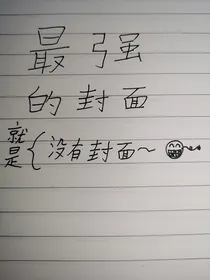 最强
的封面
就是{没有封面～